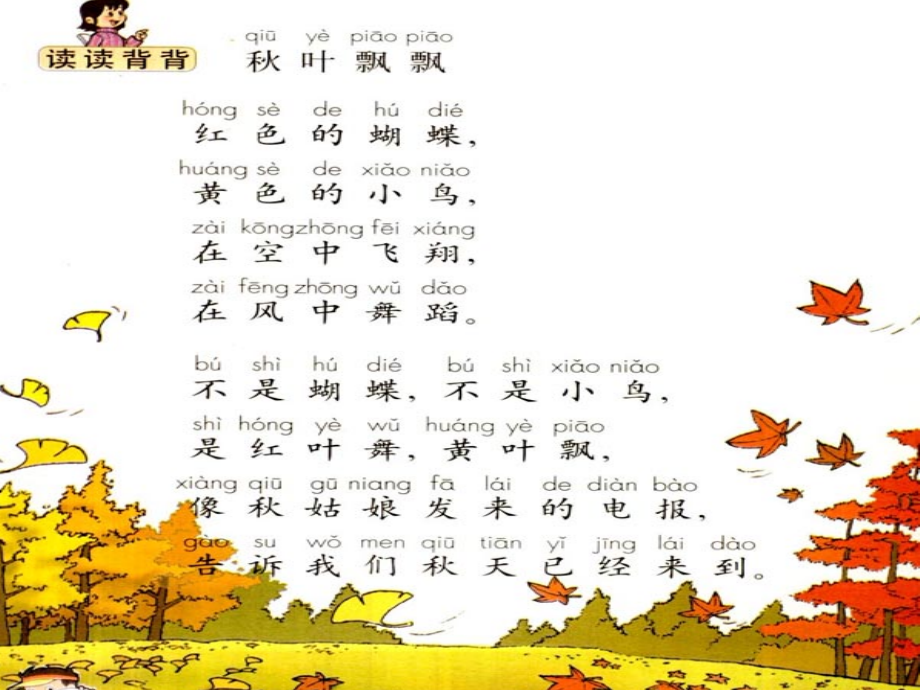 读读背背
qiū yè piāo piāo
秋叶飘飘
hóng sè de hú dié
红色的蝴蝶，
huáng sè de xiǎo niǎo
黄色的小鸟，
zài kōng zhōng fēi xiáng
在空中飞翔，
zài fēng zhōng wǔ dǎo
在风中舞蹈。
bú shì hú dié bú shì xiǎo niǎo
不是蝴蝶，不是小鸟，
shì hóng yè wǔ huáng yè piāo
是红叶舞，黄叶飘，
xiàng qiū gū niang fā lái de diàn bào
像秋姑娘发来的电报，
gào su wǒ men qiū tiān yǐ jīng lái dào
告诉我们秋天已经来到。